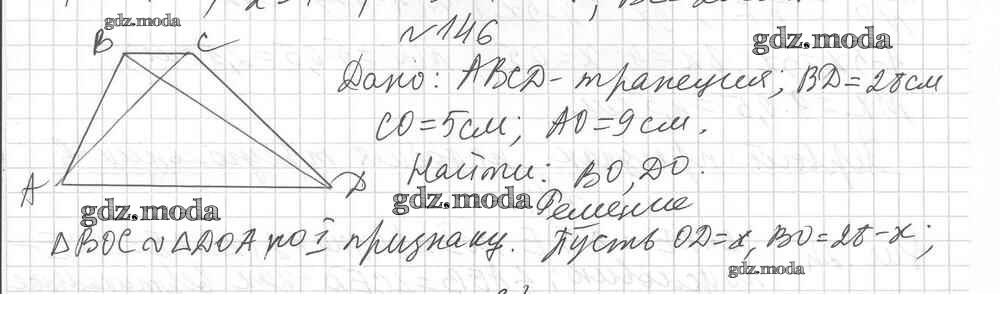 gdz.moda
B C
№146
gdz.moda
Дано: ABCD - трапеция; BD = 28см
CO = 5см; AO = 9см.
Найти: BO, DO.
A D
gdz.moda
gdz.moda
Решение
△BOC ~ △DOA по I признаку. Пусть OD = x, BO = 28 - x;
gdz.moda